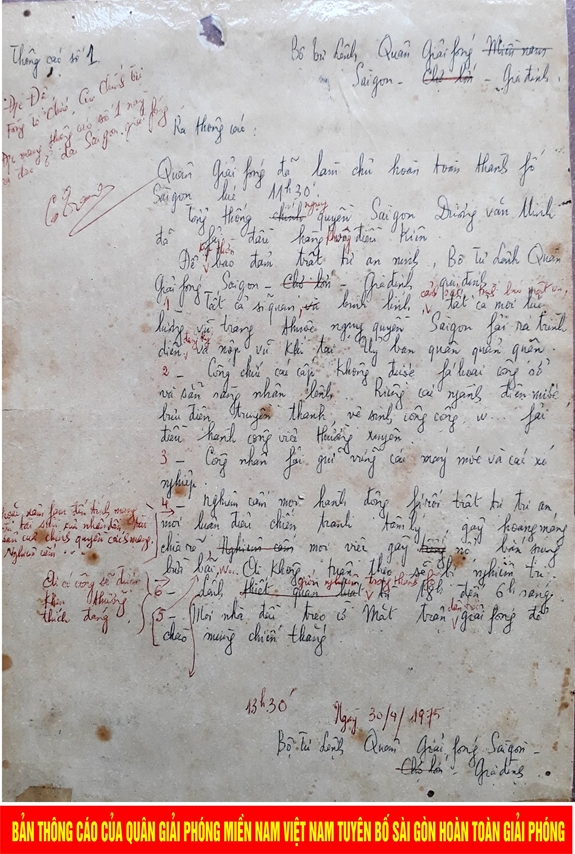 Thông cáo số 1
Bộ tư lệnh Quân Giải fóng Miền nam
Saigon - Chợ lớn - Gia định
Đọc
1 này
Saigon giải fóng
Ra thông cáo :
Quân Giải fóng đã làm chủ hoàn toàn thành fố
Saigon lúc 11h30'
Tổng thống chính ngụy quyền Saigon Dương văn Minh
đã đầu hàng không điều kiện
Để bảo đảm trật tự an ninh, Bộ Tư Lệnh Quân
Giải fóng - Saigon - Chợ lớn - Gia định qui định
1 - Tất cả sĩ quan, và binh lính, cảnh sát tất cả mọi lực
lượng vũ trang thuộc ngụy quyền Saigon fải ra trình
diện và nộp vũ khí tại Ủy ban quân quản quận
2 - Công chức các cấp không được fá hoại công sở
và sẵn sàng nhận lệnh. Riêng các ngành điện nước
bưu điện, truyền thanh vệ sinh, công cộng, v.v... fải
điều hành công việc thường xuyên.
3 - Công nhân fải giữ vững các máy móc và các xí
nghiệp.
4 - Nghiêm cấm mọi hành động fá rối trật tự trị an
mọi luận điệu chiến tranh tâm lý gây hoang mang
chia rẽ Nghiêm cấm mọi việc gây nổ bắn súng
bừa bãi v.v... Ai không tuân theo sẽ bị nghiêm trị.
6 - Lệnh thiết quân luật giới nghiêm trong thành fố từ 18h đến 6h sáng
5 - Mỗi nhà đều treo cờ Mặt trận dân tộc giải fóng để
chào mừng chiến thắng
chính quyền cách mạng.
Nghiêm cấm ...
Ai có công sẽ được
khen thưởng
thích đáng.
13h30'
Ngày 30/4/1975
Bộ Tư Lệnh Quân Giải fóng Saigon -
Chợ lớn - Gia định
BẢN THÔNG CÁO CỦA QUÂN GIẢI PHÓNG MIỀN NAM VIỆT NAM TUYÊN BỐ SÀI GÒN HOÀN TOÀN GIẢI PHÓNG